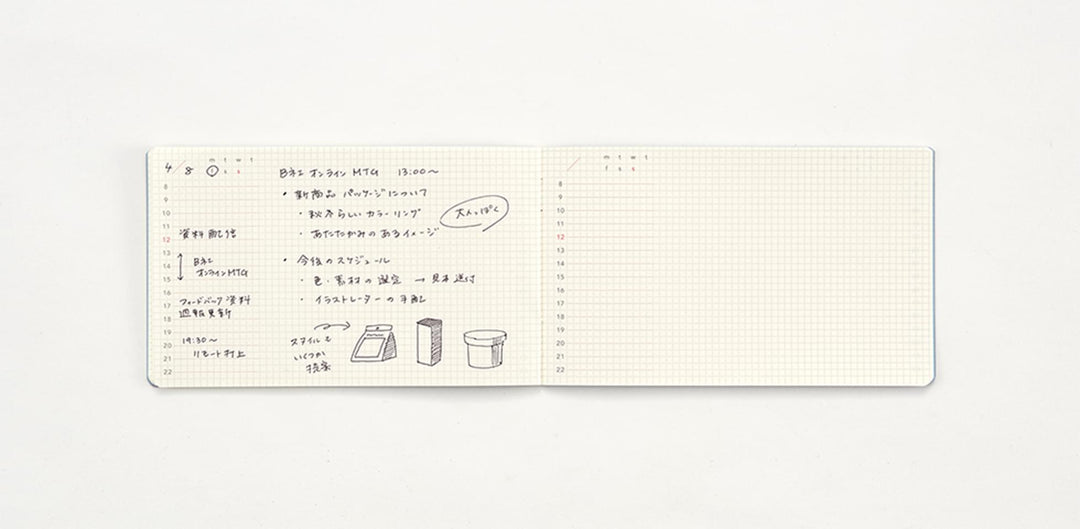 4/8
m t w t
f s s
8
9
10
11 資料配信
12
13 B社
14 オンラインMTG
15
16
17 フィードバック資料
18 週報更新
19
20 19:30〜
21 リモート村上
22
B社 オンライン MTG 13:00〜
・新商品 パッケージについて
・秋冬らしい カラーリング
大人っぽく
・あたたかみのあるイメージ
・今後のスケジュール
・色・素材の選定 → 見本送付
・イラストレーターの手配
スタイルも
いくつか
提案
/
m t w t
f s s
8
9
10
11
12
13
14
15
16
17
18
19
20
21
22